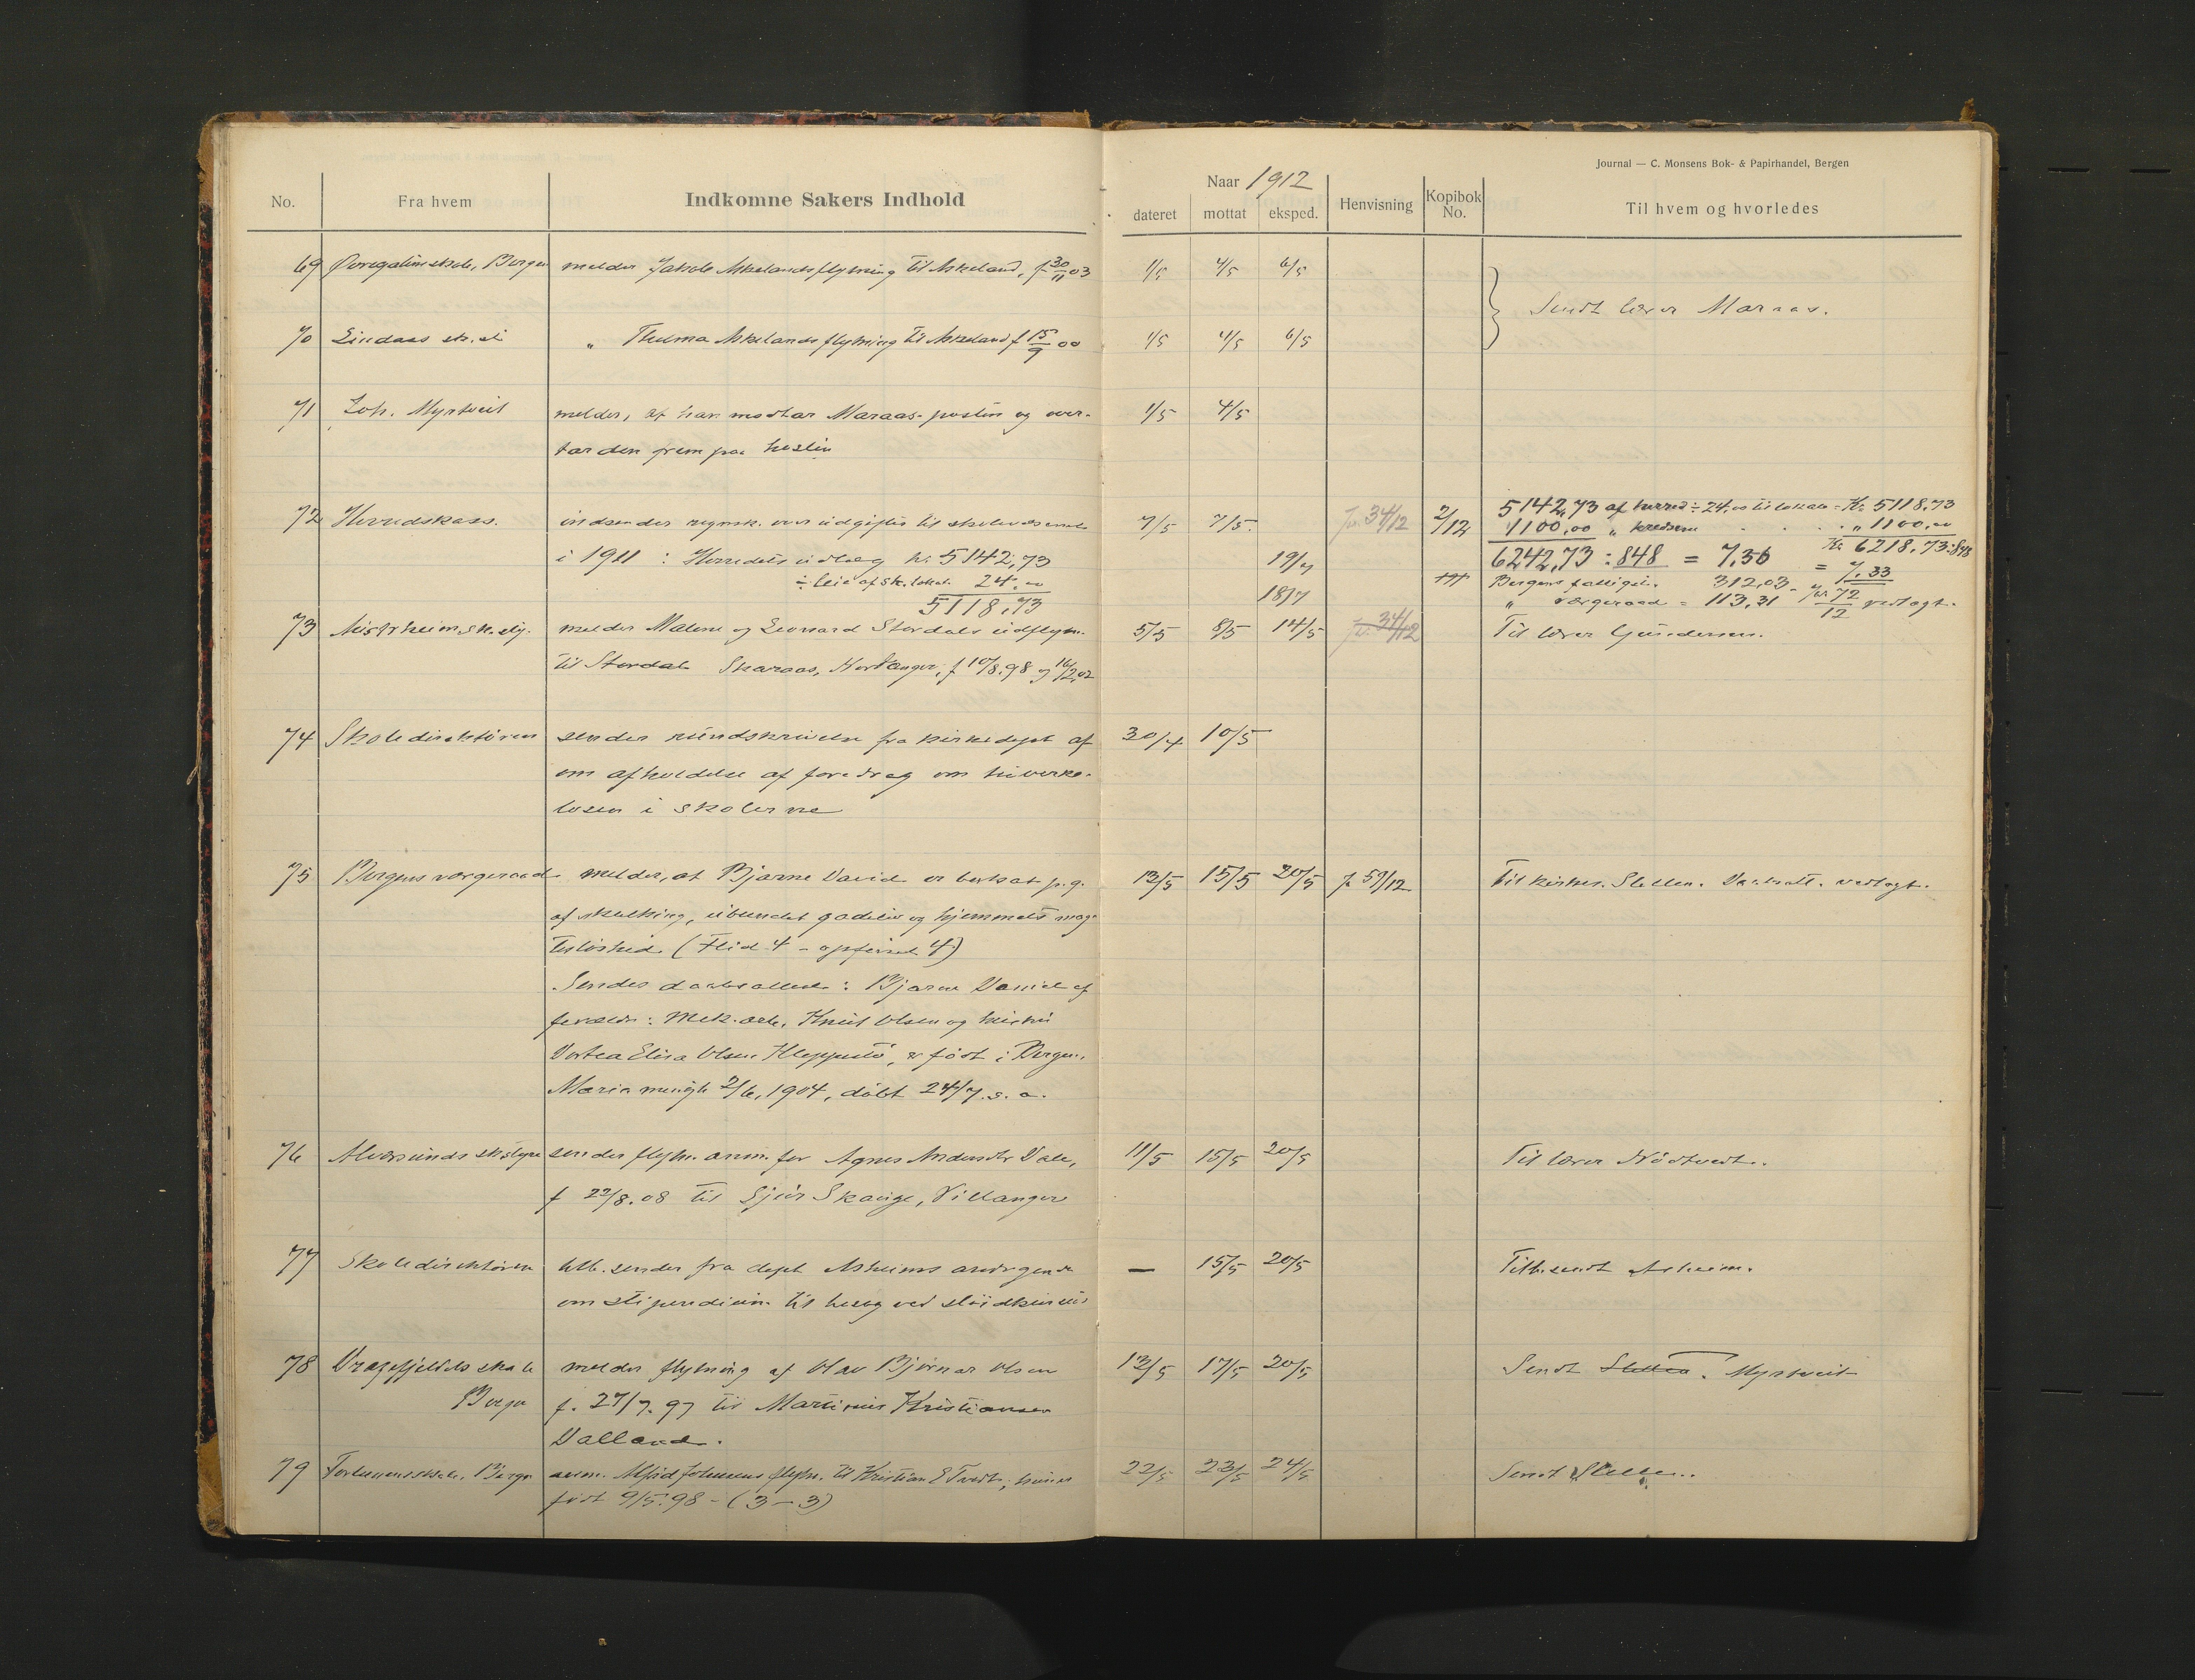 Journal — C. Monsens Bok- & Papirhandel, Bergen
No. Fra hvem Indkomne Sakers Indhold
Naar 1912
dateret mottat eksped. Henvisning Kopibok No. Til hvem og hvorledes
69 skole, Bergen melder Jakob Askelands flytning til Askeland, f 30/11 03 1/5 4/5 6/5
Sendt lærer Maraas.
70 Lindaas sk.st " Askelands flytning til Askeland f 15/9 00 1/5 4/5 6/5
71 Joh. Myrtveit melder, at han modtar Maraas-posten og over- 1/5 4/5
tar den frem paa høsten
72 Herredskass. indsender regnsk. over utgifter til skolevæsenet 7/5 7/5. Jr. 34/12 2/12 5142,73 af herred ÷ 24,00 til lokale = Kr. 5118,73
1100,00 " kredsene " 1100,00
i 1911 : Herredets utlæg kr. 5142,73 19/7 6242,73 : 848 = 7,36 Kr. 6218,73:848
÷ leie af sk.lokal. 24.00 = 7,33
5118,73 18/7 Bergens fattigv. 312,03
" værgeraad = 113,31 jr. 72/12 vedlagt.
73 sk.sty. melder Malene og Leonard Stordals utflytn. 5/5 8/5 14/5 jr. 34/12 Til lærer Gundersen.
til Stordal Skaraas, f 10/8.98 og 16/2.02
74 Skoledirektøren sender rundskrivelse fra kirkedept af 30/4 10/5
om afholdelse af foredrag om tuberku-
losen i skolerne
75 Bergens værgeraad melder, at Bjarne David er bortsat p.g. 13/5 15/5 20/5 jr 59/12 Til kirkes. Sletten. Daabsatt. vedlagt.
af skulking, ubundet gadeliv og hjemmets mag-
tesløshed (Flid 4 – opførsel 4)
Sendes daabsattest : Bjarne Daniel af
forældr : Mek.arb. Knut Olsen og hustru
Dortea Elisa Olsen Kleppestø, er født i Bergen,
Maria menigh 2/6, 1904, døbt 24/7. s. a.
76 Alversunds skstyre sender flytn. anm. for Agnes Andersdtr Dale, 11/5 15/5 20/5 Til lærer Nødtvedt.
f 22/8.08 til Skauge, Villanger
77 Skoledirektøren tilb. sender fra dept Askeims andragende — 15/5 20/5 Tilb. sendt Askeim.
om stipendium til besøg ved sløidkursus
78 Dragefjeldets skole melder flytning af Olav Bjørnar Olsen 13/5 17/5 20/5 Sendt Sletten. Myrtveit
Bergen f. 27/7.97 til Martinius Kristiansen
Dalland.
79 skole, Bergen anm. flytn. til Kristian E Tvedt, 22/5 23/5 24/5 Sendt Sletten.
født 9/5.98 – (3–3)